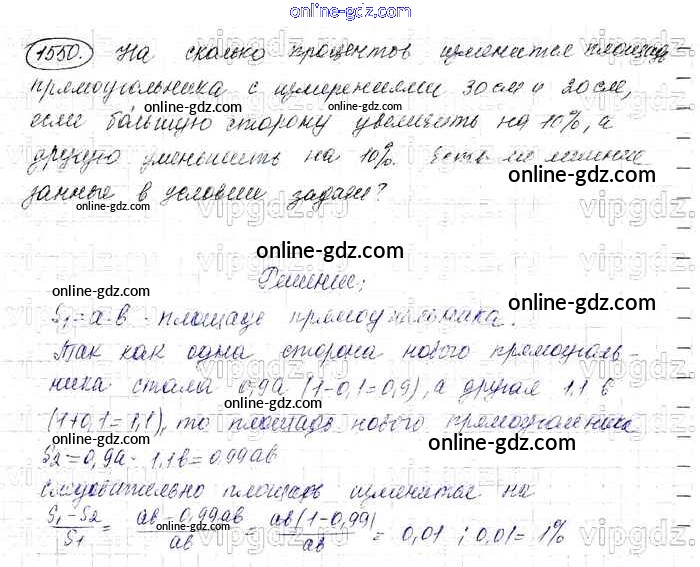 online-gdz.com
1550. На сколько процентов изменится площадь
прямоугольника с измерениями 30см и 20см,
online-gdz.com
если большую сторону увеличить на 10%, а
online-gdz.com
другую уменьшить на 10%. Есть ли лишние
данные в условии задачи?
online-gdz.com
online-gdz.com
Решение;
online-gdz.com
S₁=a·b - площадь прямоугольника.
Так как одна сторона нового прямоуголь-
online-gdz.com
ника стала 0,9a (1-0,1=0,9), а другая 1,1 b
(1+0,1=1,1), то площадь нового прямоугольника
online-gdz.com
S2=0,9a · 1,1b=0,99ab
online-gdz.com
следовательно площадь изменится на
online-gdz.com
(S₁-S2)/S1 = (ab-0,99ab)/ab = ab(1-0,99)/ab = 0,01 ; 0,01=1%
online-gdz.com